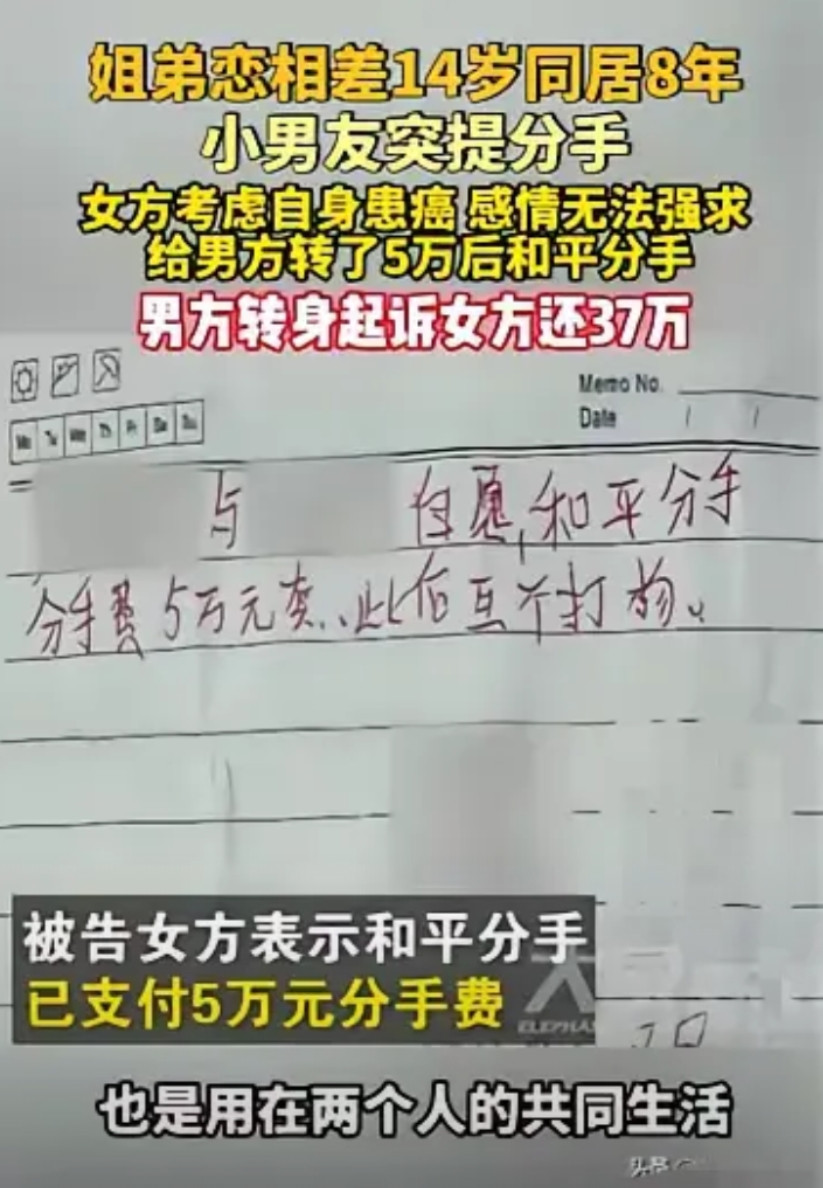 姐弟恋相差14岁同居8年
小男友突提分手
女方考虑自身患癌 感情无法强求
给男方转了5万后和平分手
男方转身起诉女方还37万
Memo No.
Date / /
Mo Tu We Th Fr Sa Su
与 自愿,和平分手
分手费5万元整.此后互不打扰.
被告女方表示和平分手
已支付5万元分手费
ELEPHA
也是用在两个人的共同生活
头条